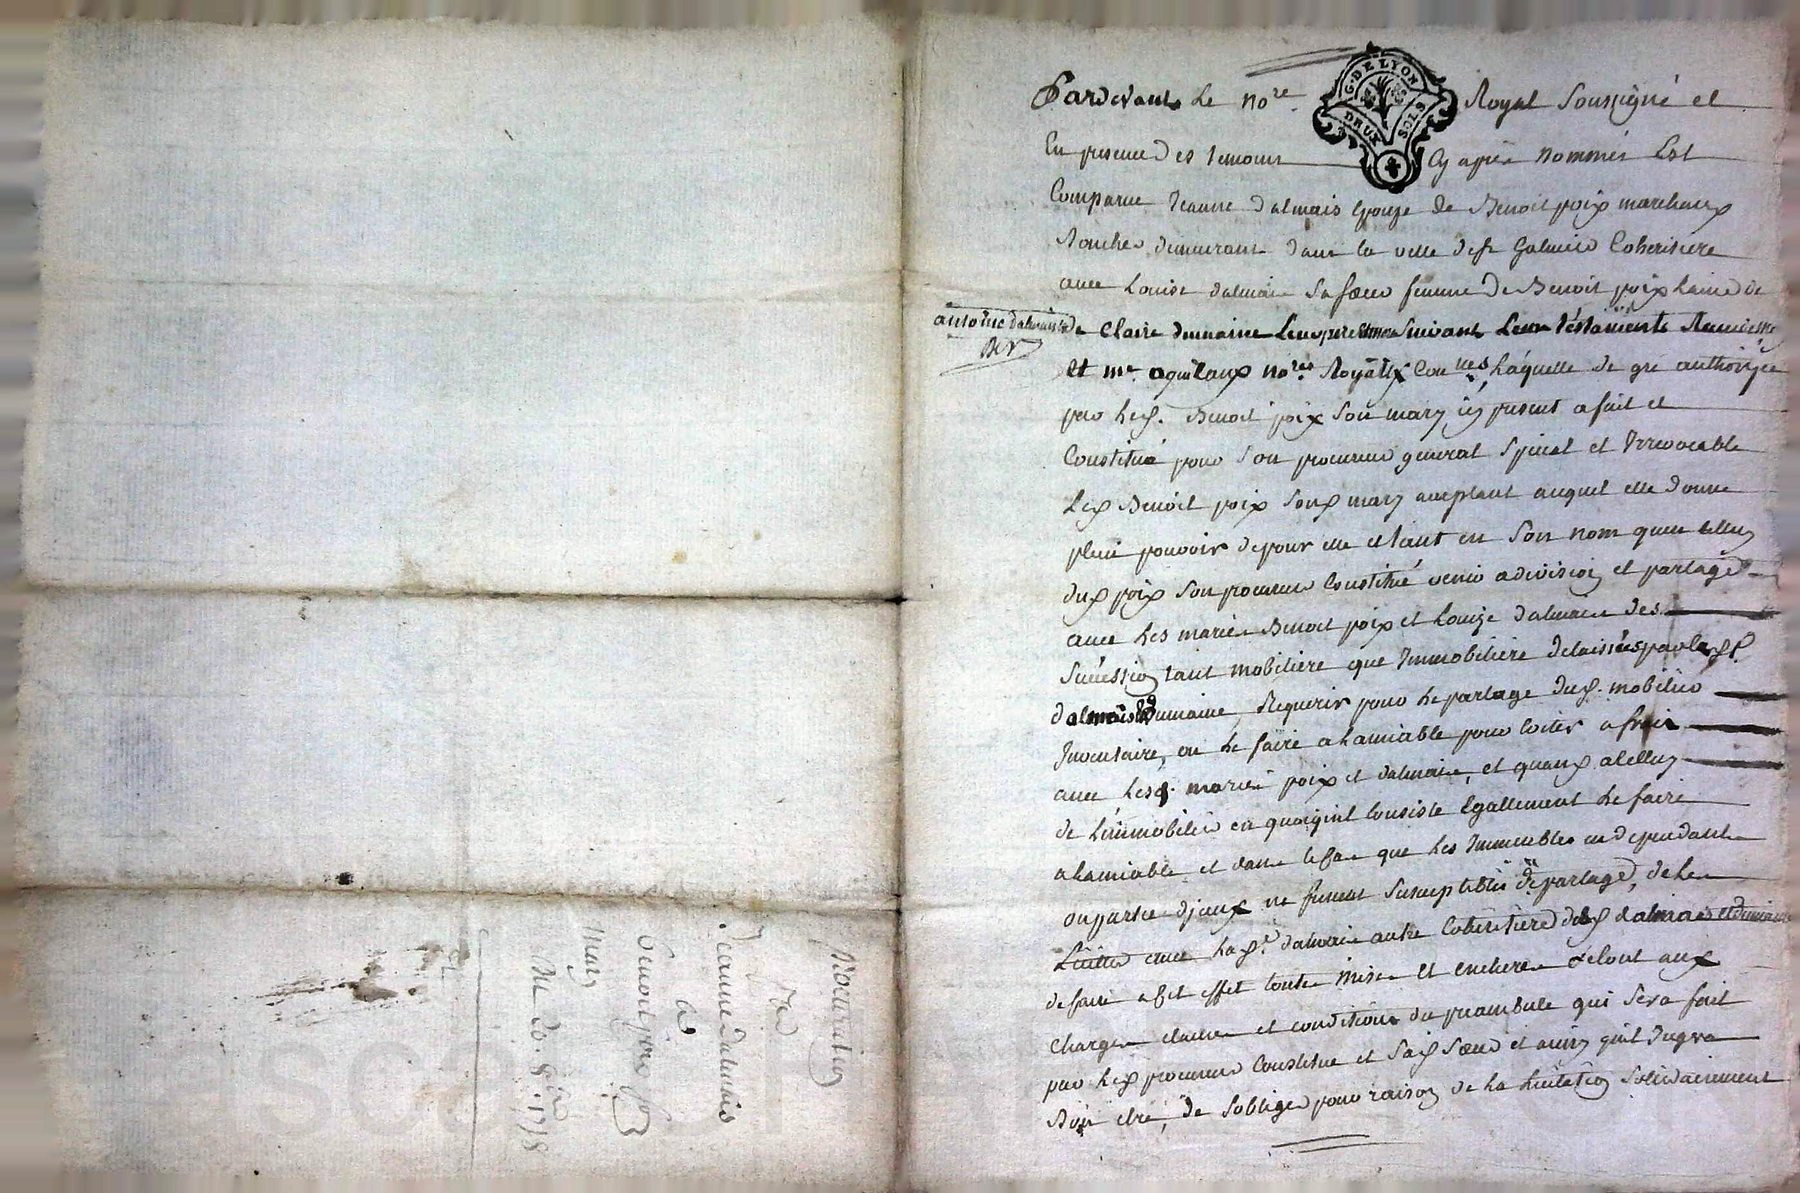 Pardevant Le no.re Royal Soussigné et
En presence des temoins Cy aprés nommés Est
Comparue Jeanne dalmais Epouze de Benoit poix marchand
Boucher demeurant dans la ville de st Galmier Coheritiere
avec Louise dalmais Sa soeur femme de Benoit poix Lainé de
antoine dalmais & de Claire dumaine Leur pere & mere Suivant Leur téstaments
et me aguilaux no.res Royaux Láquelle de gré authorizée
par led. Benoit poix Son mary icy present a fait et
Constitué pour Son procureur général Special et Irrevocable
Led Benoit poix Sond mary acceptant auquel elle donne
plein pouvoir de pour elle et tant en Son nom quen celluy
dud poix Son procureur Constitué venir a division et partage
avec Les mariés Benoit poix et Louize dalmais des
Successions tant mobiliere que Immobiliere delaissées par lesd
dalmais & dumaine, Requerir pour Le partage dud. mobilier
Inventaire, ou Le faire a Lamiable pour Eviter a frais
avec Lesd. mariés poix et dalmais, et quand a celluy
de Limmobilier en quoiquil Consiste Egallement Le faire
a Lamiable et dans le Cas que Les Immeubles en dependants
ou partie diceux ne fussent Susceptibles de partage, de Les
Liciter avec Lad.e dalmais autre Coheritiere desd dalmais et dumaine
de faire a Cet effet toutes mises et encheres Celout aux
Charges clauses et conditions du preambule qui Sera fait
par Led procureur Constitué et Sad Soeur et ainsy quil Jugera
Bon etre, de Sobliger pour raison de La Licitation Solidairement
G. DE LYON
DEUX SOLS
Procuration
de
Jeanne dalmais
a
Benoit poix
mary
Du 20. 8.bre 1778